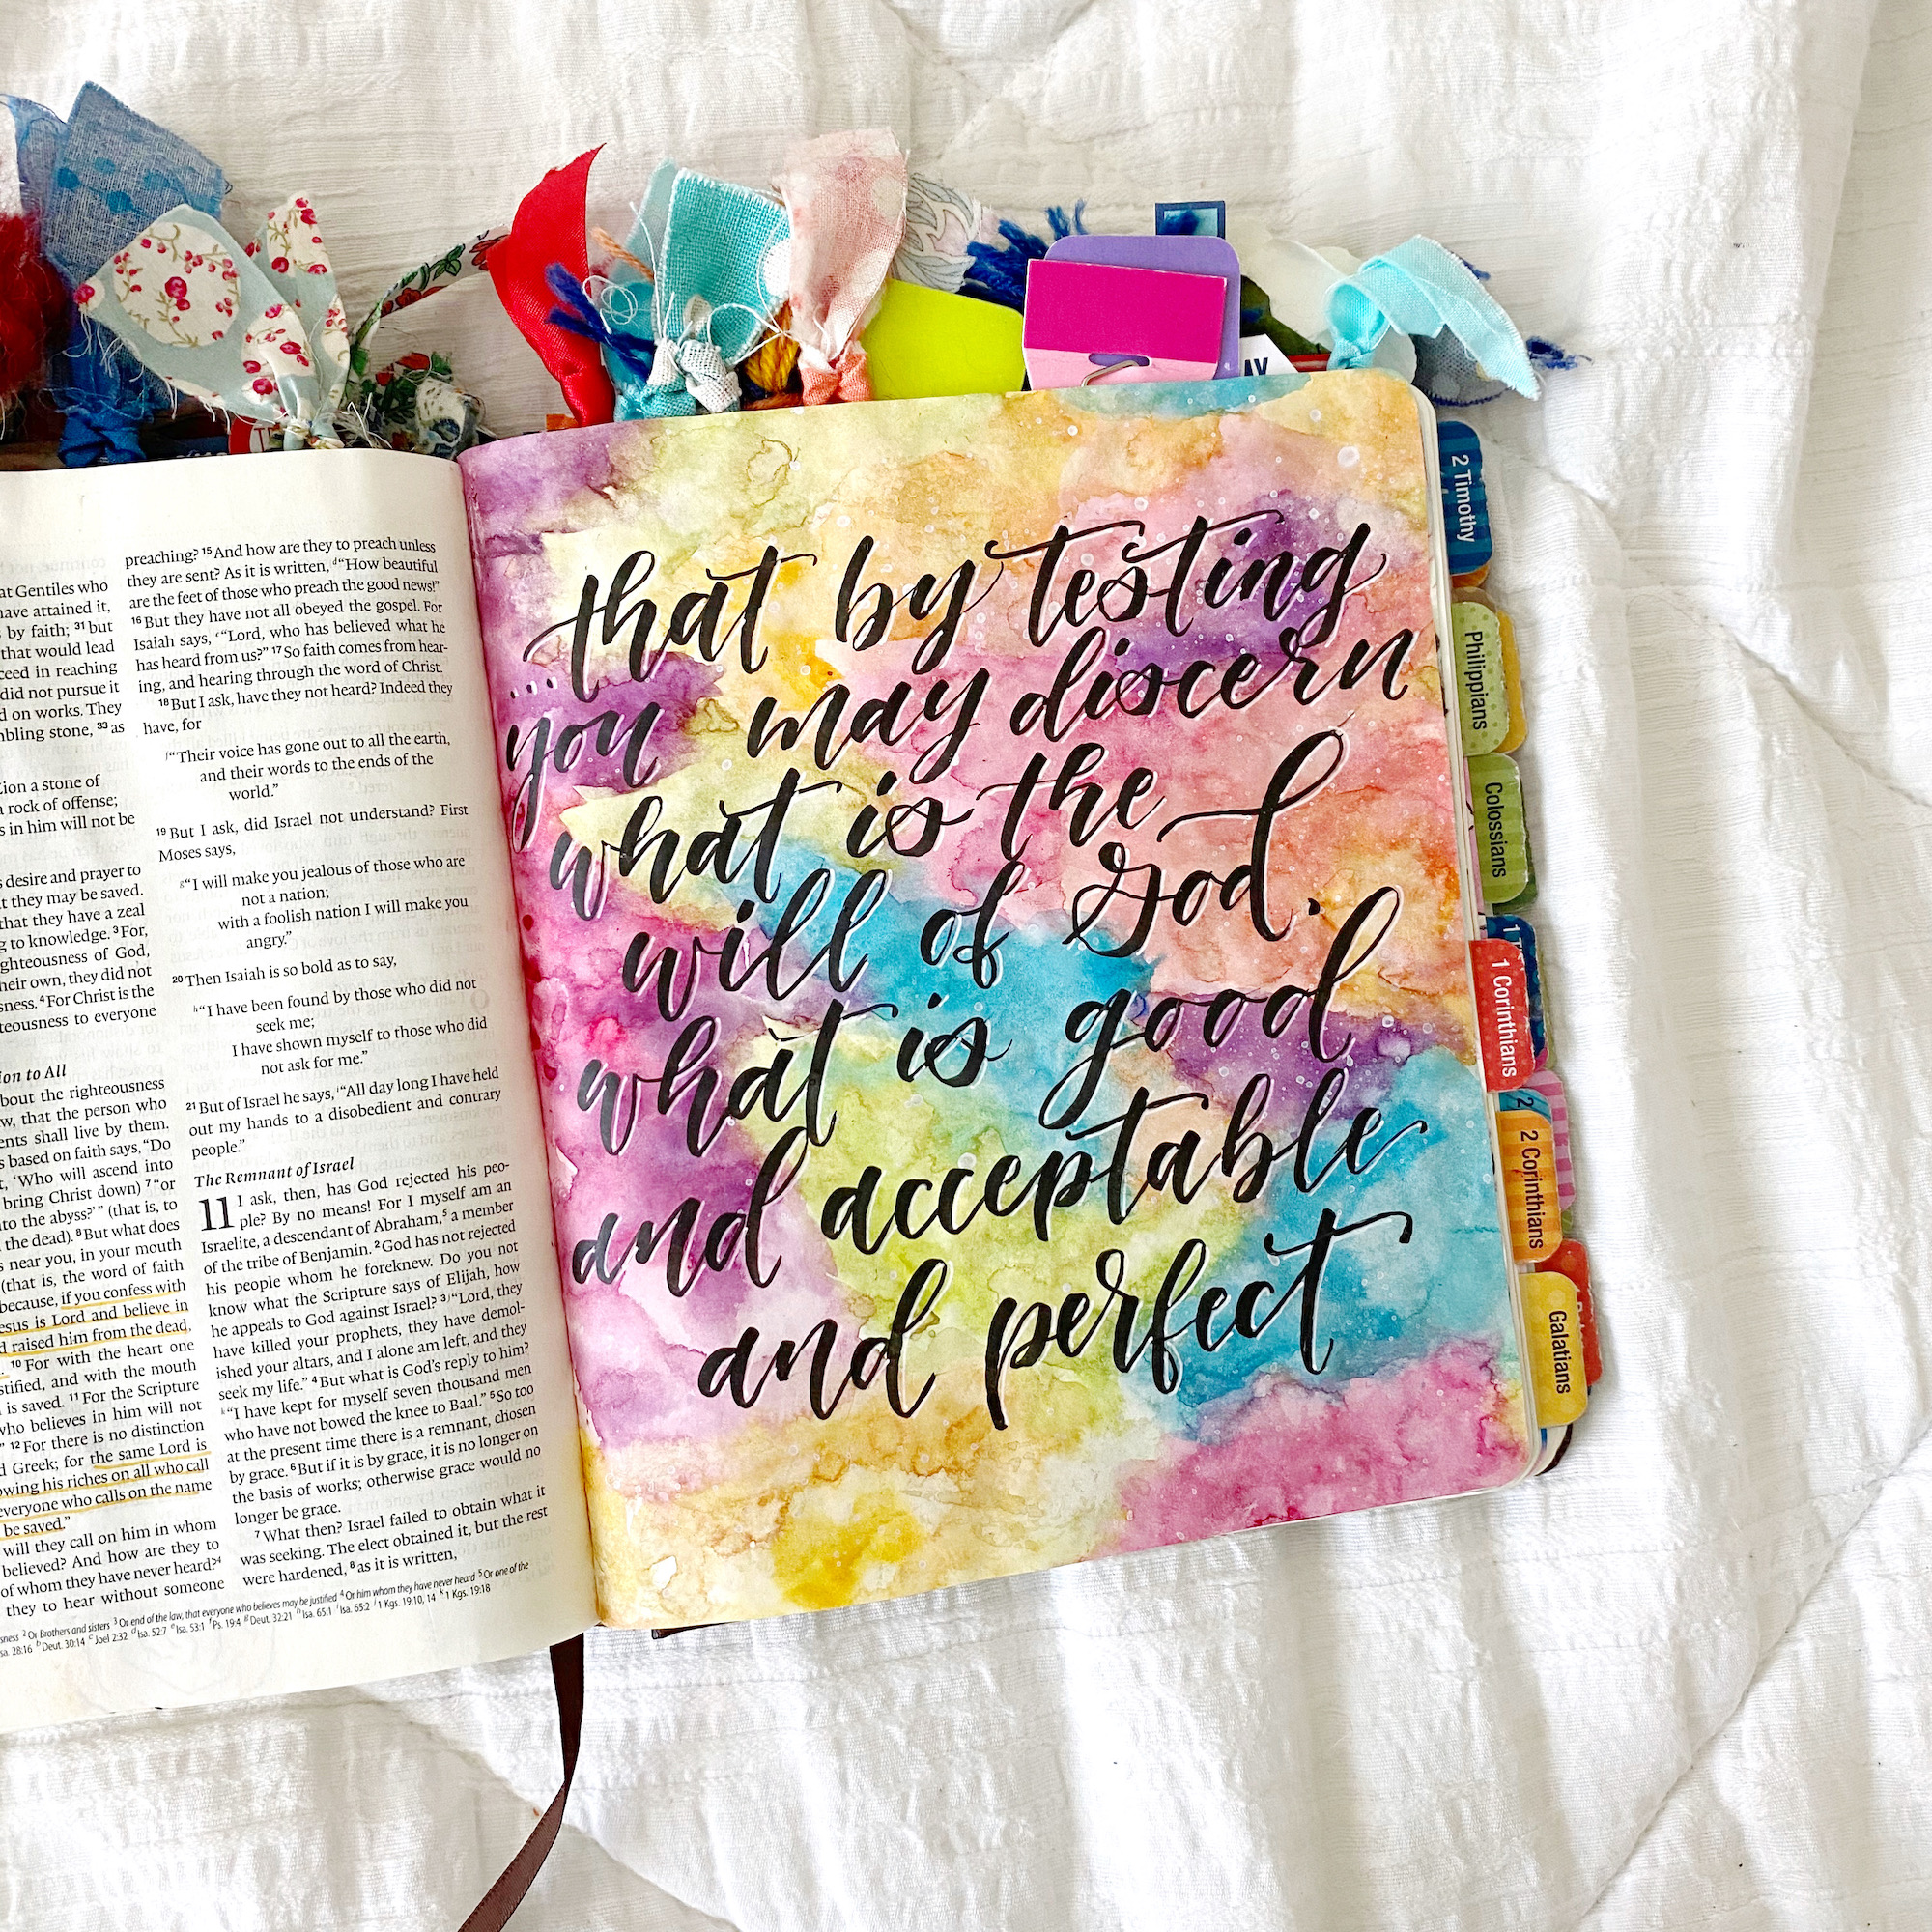 at Gentiles who
have attained it,
by faith; 31 but
that would lead
ceed in reaching
did not pursue it
d on works. They
mbling stone, 33 as
Zion a stone of
rock of offense;
s in him will not be
desire and prayer to
t they may be saved.
that they have a zeal
g to knowledge. 3 For,
ghteousness of God,
heir own, they did not
sness. 4 For Christ is the
teousness to everyone
ion to All
bout the righteousness
w, that the person who
ents shall live by them.
s based on faith says, “Do
t, ‘Who will ascend into
bring Christ down) 7 “or
to the abyss?’” (that is, to
the dead). 8 But what does
s near you, in your mouth
(that is, the word of faith
because, if you confess with
esus is Lord and believe in
d raised him from the dead,
10 For with the heart one
stified, and with the mouth
is saved. 11 For the Scripture
who believes in him will not
” 12 For there is no distinction
d Greek; for the same Lord is
owing his riches on all who call
everyone who calls on the name
be saved.”
will they call on him in whom
believed? And how are they to
of whom they have never heard? 4
they to hear without someone
preaching? 15 And how are they to preach unless
they are sent? As it is written, d “How beautiful
are the feet of those who preach the good news!”
16 But they have not all obeyed the gospel. For
Isaiah says, e “Lord, who has believed what he
has heard from us?” 17 So faith comes from hear-
ing, and hearing through the word of Christ.
18 But I ask, have they not heard? Indeed they
have, for
f “Their voice has gone out to all the earth,
and their words to the ends of the
world.”
19 But I ask, did Israel not understand? First
Moses says,
g “I will make you jealous of those who are
not a nation;
with a foolish nation I will make you
angry.”
20 Then Isaiah is so bold as to say,
h “I have been found by those who did not
seek me;
I have shown myself to those who did
not ask for me.”
21 But of Israel he says, i “All day long I have held
out my hands to a disobedient and contrary
people.”
The Remnant of Israel
11 I ask, then, has God rejected his peo-
ple? By no means! For I myself am an
Israelite, a descendant of Abraham, 5 a member
of the tribe of Benjamin. 2 God has not rejected
his people whom he foreknew. Do you not
know what the Scripture says of Elijah, how
he appeals to God against Israel? 3 j “Lord, they
have killed your prophets, they have demol-
ished your altars, and I alone am left, and they
seek my life.” 4 But what is God’s reply to him?
k “I have kept for myself seven thousand men
who have not bowed the knee to Baal.” 5 So too
at the present time there is a remnant, chosen
by grace. 6 But if it is by grace, it is no longer on
the basis of works; otherwise grace would no
longer be grace.
7 What then? Israel failed to obtain what it
was seeking. The elect obtained it, but the rest
were hardened, 8 as it is written,
sness 2 Or Brothers and sisters 3 Or end of the law, that everyone who believes may be justified 4 Or him whom they have never heard 5 Or one of the
sa. 28:16 b Deut. 30:14 c Joel 2:32 d Isa. 52:7 e Isa. 53:1 f Ps. 19:4 g Deut. 32:21 h Isa. 65:1 i Isa. 65:2 j 1 Kgs. 19:10, 14 k 1 Kgs. 19:18
...that by testing
you may discern
what is the
will of God.
what is good
and acceptable
and perfect
AY
2 Timothy
Philippians
Colossians
1 T
1 Corinthians
2
2 Corinthians
Galatians